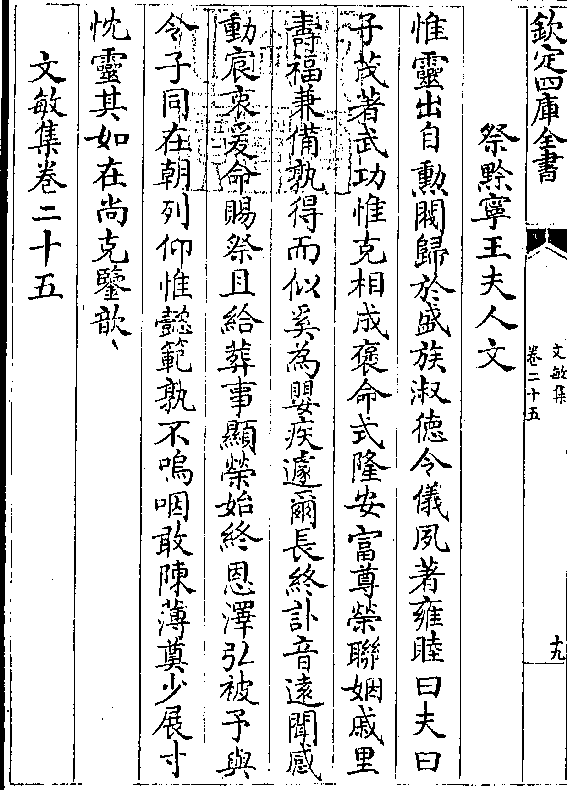 欽定四庫全書
文敏集
卷二十五
十九
祭黔寧王夫人文
惟靈出自勲閥歸於盛族淑徳令儀夙著雍睦曰夫曰
子茂著武功惟克相成褒命式隆安富尊榮聯姻戚里
壽福兼備孰得而似奚為嬰疾遽爾長終訃音遠聞感
動宸衷爰命賜祭且給葬事顯榮始終恩澤弘被予與
令子同在朝列仰惟懿範孰不嗚咽敢陳薄奠少展寸
忱靈其如在尚克鑒歆
文敏集卷二十五